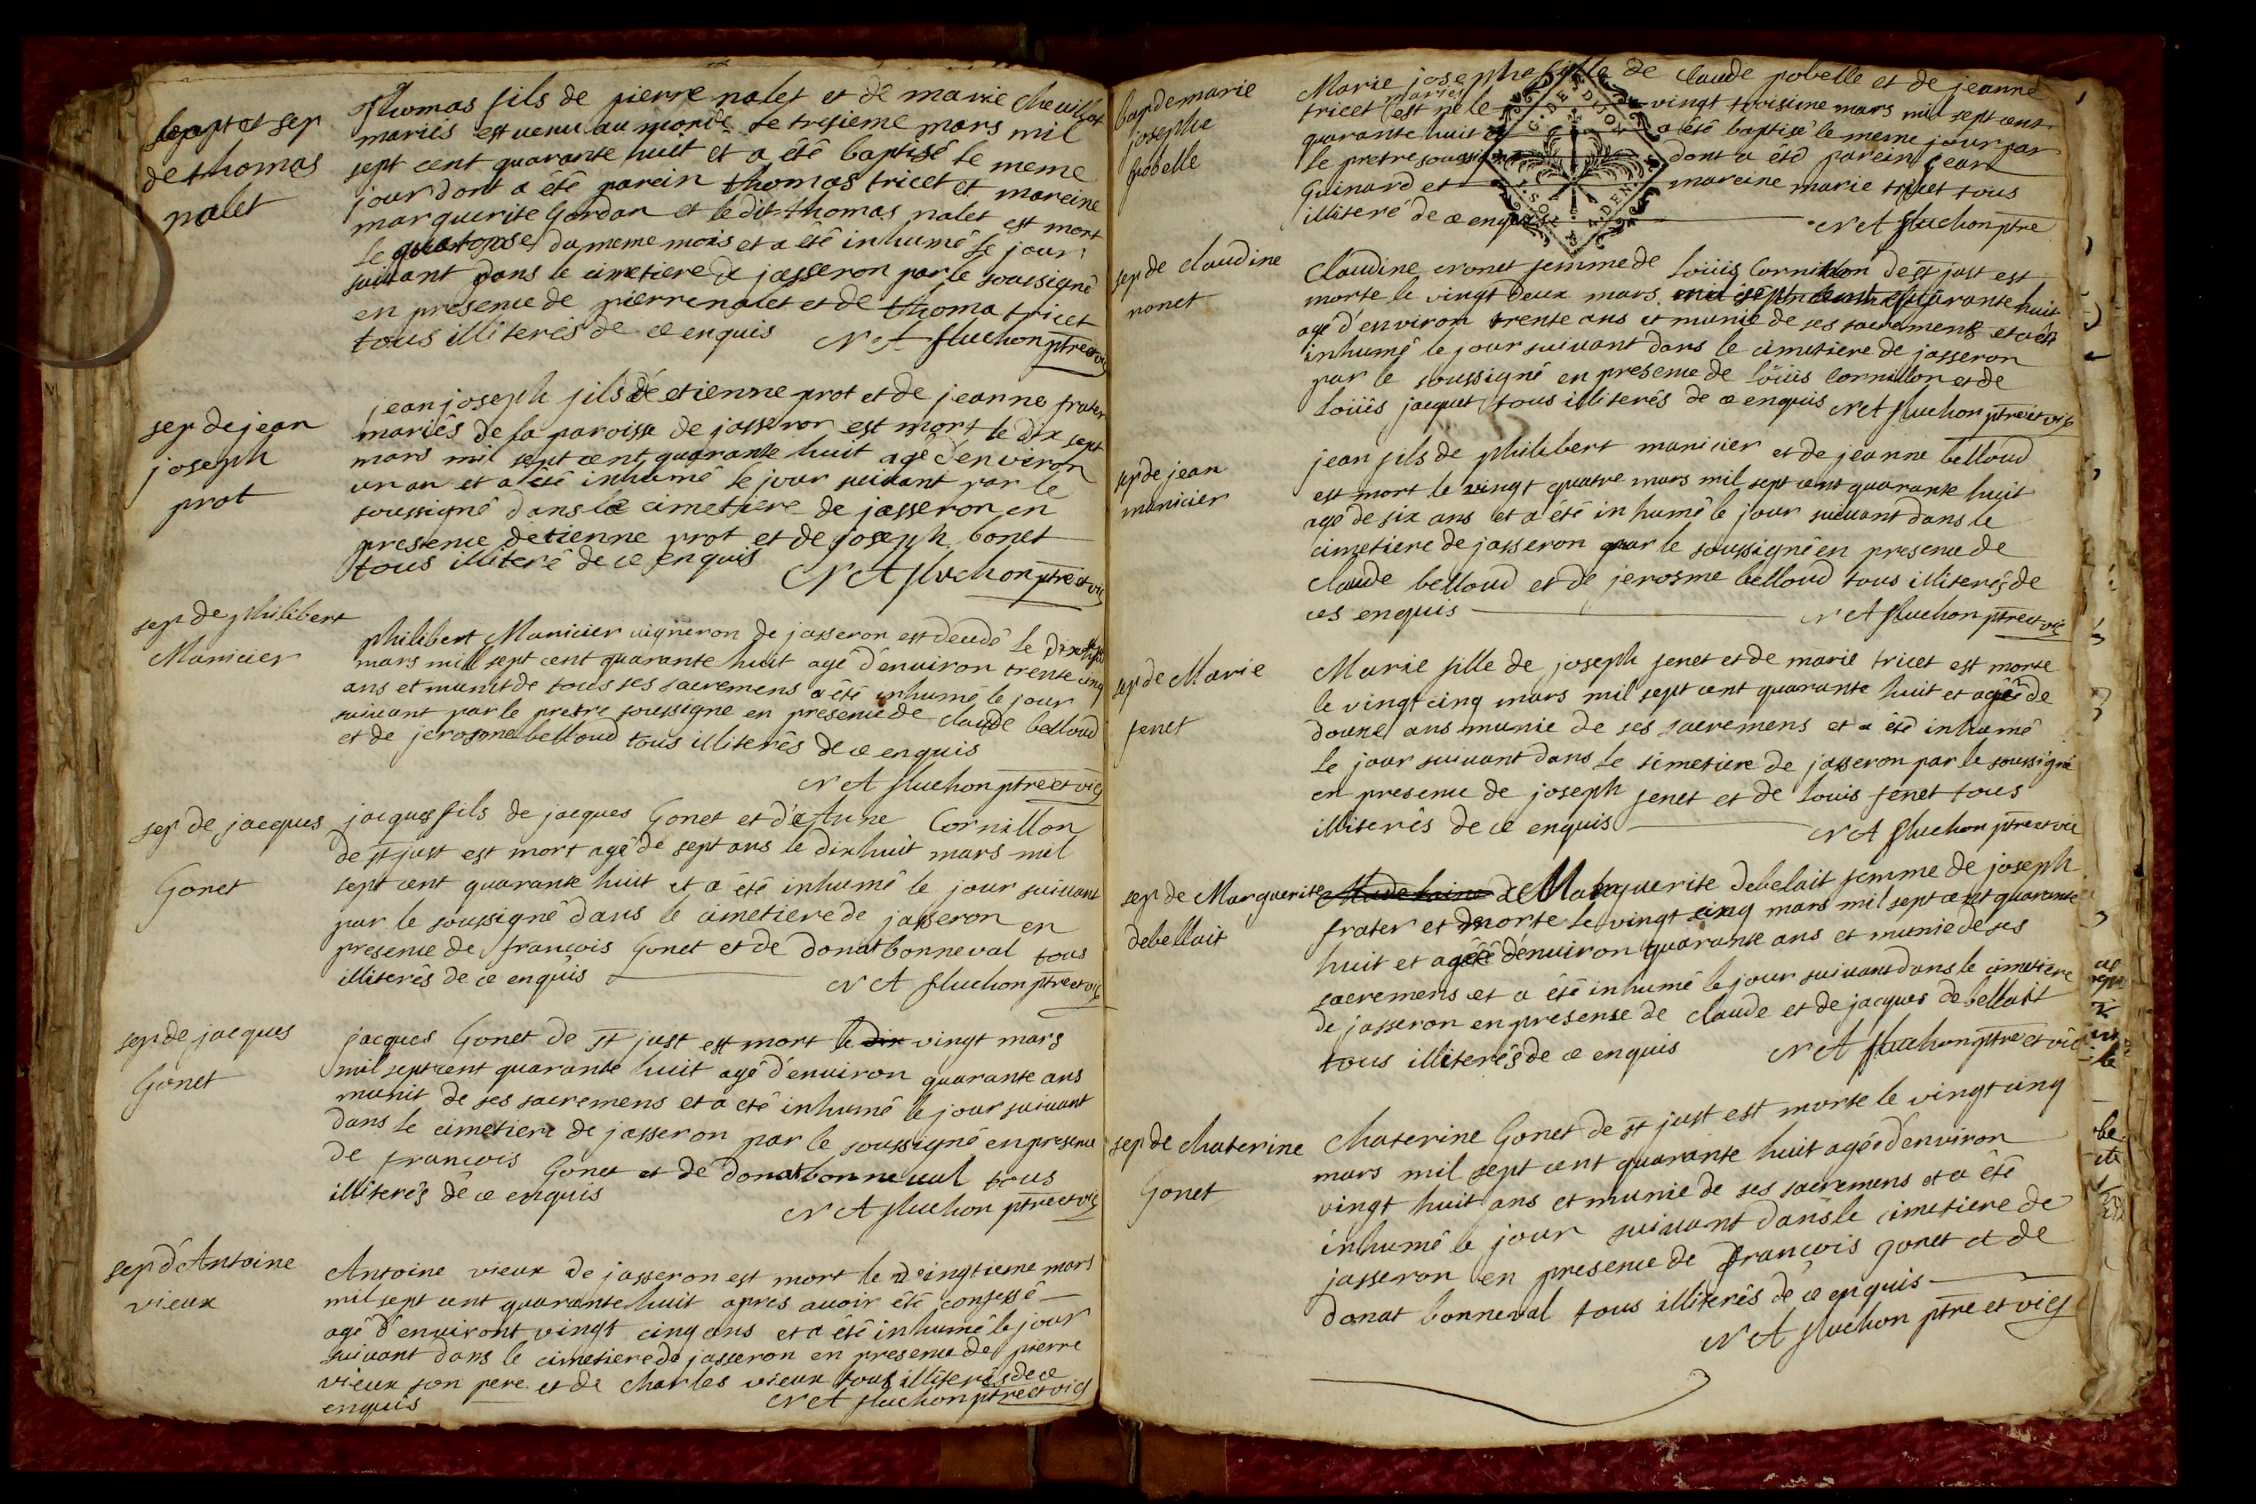 bapt et sep
de thomas
nalet
Thomas fils de pierre nalet et de marie chevillat
mariés est venu au monde le tresieme mars mil
sept cent quarante huit et a été baptisé le meme
jour dont a été parein thomas tricet et mareine
marguerite Gordan et ledit thomas nalet est mort
le quatorse du meme mois et a été inhumé le jour
suivant dans le cimetiere de jasseron par le soussigné
en presence de pierre nalet et de thoma tricet
tous illiterés de ce enquis N A fluchon ptre et vic
sep de jean
joseph
prot
jean joseph fils de etienne prot et de jeanne frater
mariés de la paroisse de jasseron est mort le dix sept
mars mil sept cent quarante huit agé d'environ
un an et a été inhumé le jour suivant par le
soussigné dans le cimetiere de jasseron en
presence detienne prot et de joseph bonet
tous illiteré de ce enquis
N A fluchon ptre et vic
sep de philibert
Manicier
philibert Manicier vigneron de jasseron est decedé le
mars mill sept cent quarante huit agé d'environ trente cinq
ans et munit de tous ses sacremens a été inhumé le jour
suivant par le prestre soussigne en presence de claude belloud
et de jerosme belloud tous illiterés de ce enquis
N A fluchon ptre et vic
sep de jacques
Gonet
jacques fils de jacques Gonet et d'Anne Cornillon
de st just est mort agé de sept ans le dix huit mars mil
sept cent quarante huit et a été inhumé le jour suivant
par le soussigné dans le cimetiere de jasseron en
presence de françois Gonet et de donat bonneval tous
illiterés de ce enquis N A fluchon ptre et vic
sep de jacques
Gonet
jacques Gonet de st just est mort le dix vingt mars
mil sept cent quarante huit agé d'environ quarante ans
munit de ses sacremens et a eté inhumé le jour suivant
dans le cimetiere de jasseron par le soussigné en presence
de françois Gonet et de donat bonneval tous
illiterés de ce enquis
N A fluchon ptre et vic
sep d'Antoine
vieux
Antoine vieux de jasseron est mort le vingtieme mars
mil sept cent quarante huit apres avoir été confessé
agé d'environt vingt cinq ans et a été inhumé le jour
suivant dans le cimetiere de jasseron en presence de pierre
vieux son pere et de charles vieux tous illiterés de ce
enquis N A fluchon ptre et vic
bap de marie
josephe
pobelle
Marie josephe fille de claude pobelle et de jeanne
tricet mariés est né le vingt troisime mars mil sept cent
quarante huit et a été baptisé le meme jour par
le pretre soussigné dont a été parein jean
Guinard et mareine marie tricet tous
illiteré de ce enquis
N A fluchon ptre
sep de claudine
nonet
Claudine nonet femme de Loüis Cornillon de st just est
morte le vingt deux mars mil sept cent quarante huit
agé d'environ trente ans et munie de ses sacremens et a été
inhumé le jour suivant dans le cimetiere de jasseron
par le soussigné en presence de Loüis Cornillon et de
Loüis jacquet tous illiterés de ce enquis N A fluchon ptre et vic
sep de jean
manicier
jean fils de philibert manicier et de jeanne belloud
est mort le vingt quatre mars mil sept cent quarante huit
agé de six ans et a été inhumé le jour suivant dans le
cimetiere de jasseron par le soussigné en presence de
claude belloud et de jerosme belloud tous illiterés de
ces enquis N A fluchon ptre et vic
sep de Marie
fenet
Marie fille de joseph fenet et de marie tricet est morte
le vingt cinq mars mil sept cent quarante huit et agée de
douze ans munie de ses sacremens et a été inhumé
le jour suivant dans le simetiere de jasseron par le soussigné
en presence de joseph fenet et de Louis fenet tous
illiterés de ce enquis
N A fluchon ptre et vic
sep de Marguerite
debellait
Marguerite debelait femme de joseph
frater et morte le vingt cinq mars mil sept cent quarante
huit et agée d'environ quarante ans et munie de ses
sacremens et a été inhumé le jour suivant dans le cimetiere
de jasseron en presense de claude et de jacques debellait
tous illiterés de ce enquis N A fluchon ptre et vic
sep de chaterine
Gonet
Chaterine Gonet de st just est morte le vingt cinq
mars mil sept cent quarante huit agée d'environ
vingt huit ans et munie de ses sacremens et a été
inhumé le jour suivant dans le cimetiere de
jasseron en presence de françois gonet et de
donat bonneval tous illiterés de ce enquis
N A fluchon ptre et vic